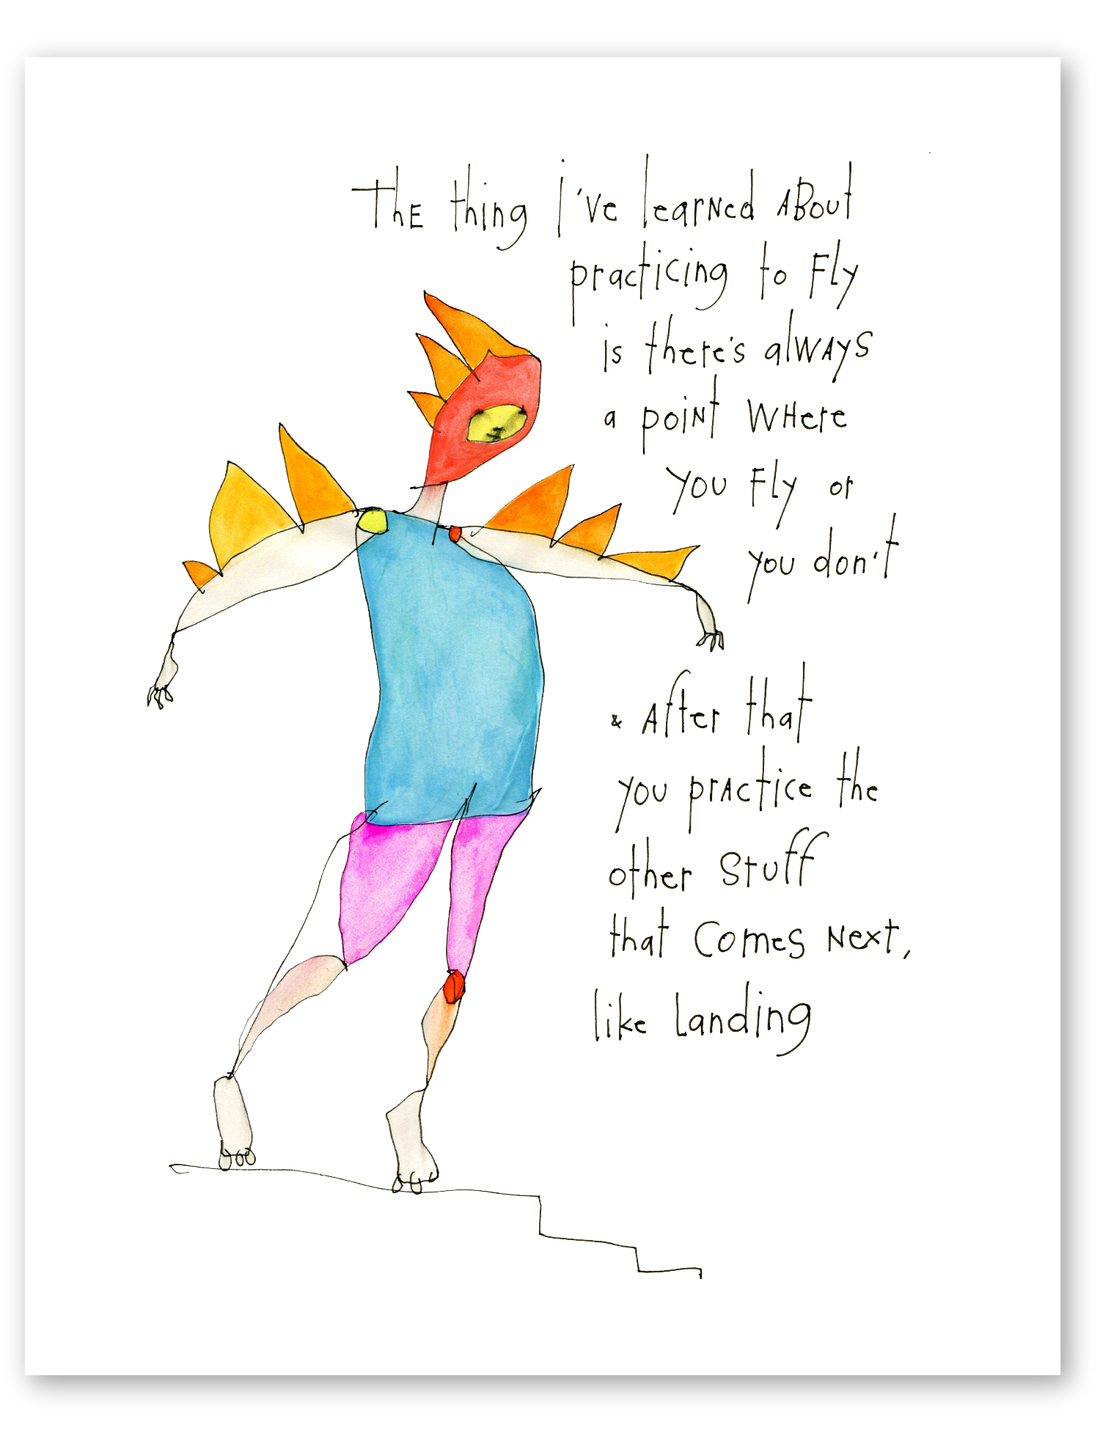 ThE thing i've learned ABout
practicing to Fly
is there's alWAYS
a poiNt WHere
YOU Fly or
you don't
& After that
you prActice the
other Stuff
that ComeS Next,
like Landing